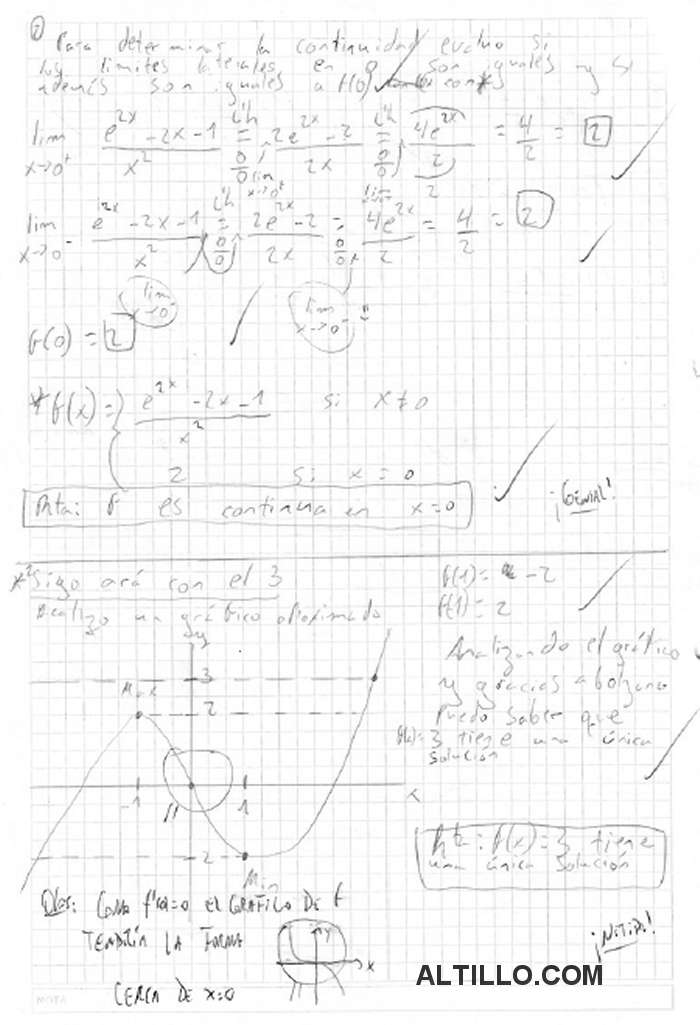 Para determinar la continuidad evaluo si
los limites laterales en 0 son iguales y si
además son iguales a f(0)
lim x→0⁺ (e^{2x} - 2x - 1)/x² = L'H 0/0 lim x→0⁺ (2e^{2x} - 2)/2x = L'H 0/0 4e^{2x}/2 = 4/2 = 2
lim x→0⁻ (e^{2x} - 2x - 1)/x² = L'H 0/0 (2e^{2x} - 2)/2x = 0/0 4e^{2x}/2 = 4/2 = 2
lim x→0⁻
lim x→0⁻
f(0) = 2
* f(x) = { (e^{2x} - 2x - 1)/x² si x ≠ 0
2 si x = 0
Rta: f es continua en x=0
¡GENIAL!
*² Sigo acá con el 3
Realizo un gráfico aproximado
f(1) = -2
f(-1) = 2
y
3
Max
2
-1
1
-2
Min
x
Analizando el gráfico
y gracias a bolzano
Puedo saber que
f(x) = 3 tiene una única
solución
Rta: f(x) = 3 tiene
una única solución
Obs: COMO f'(0)=0 EL GRÁFICO DE f
TENDRÍA LA FORMA
y
x
CERCA DE x=0
¡NITIDO!
ALTILLO.COM